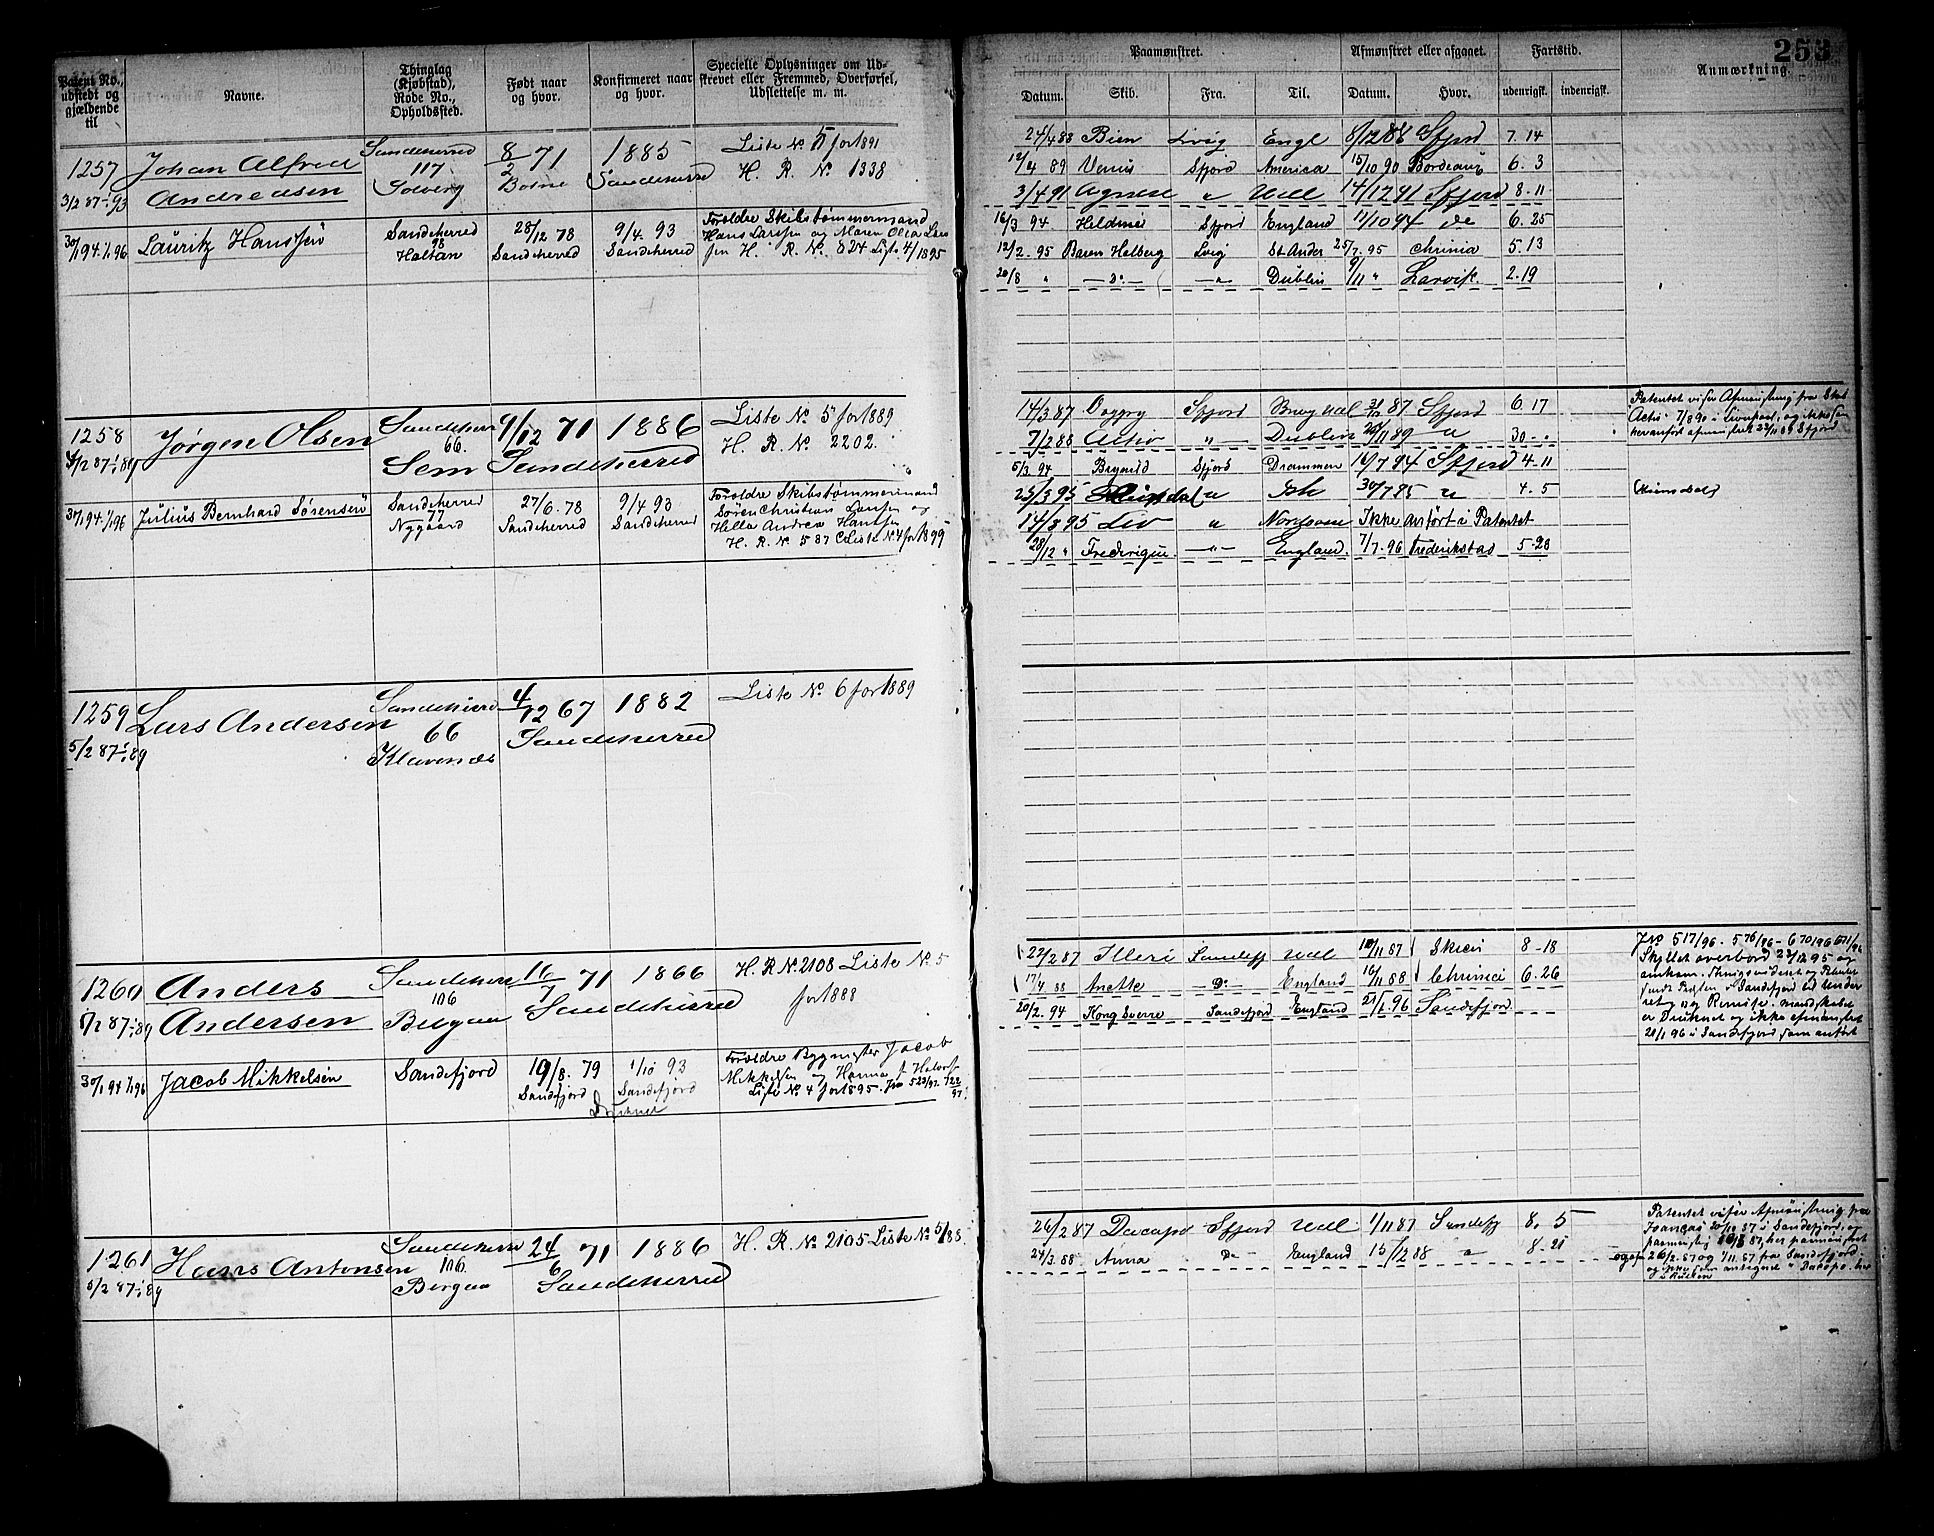 253
Patent No., udstedt og gjældende til
Navne.
Thinglag (Kjøbstad), Rode No., Opholdssted.
Født naar og hvor.
Konfirmeret naar og hvor.
Specielle Oplysninger om Udskrevet eller Fremmed, Overførsel, Udslettelse m. m.
Paamønstret.
Afmønstret eller afgaaet.
Fartstid.
Anmærkning.
Datum. Skib. Fra. Til. Datum. Hvor. udenrigsk. indenrigsk.
1257 Johan Alfred Sandeherred 8/2 71 1885 Liste No 5 for 1891
3/2 87-1/1 93 Andreasen 117 Solberg Sandeherred H. R. No 1338
30/1 94 1/1 96 Lauritz Hanssen Sandeherred 98 Haltan 28/12 78 Sandeherred 9/4. 93 Sandeherred Forældre Skibstømmermand
Hans Larssen og Maren Olea Lars
sen H. R. No. 824 Liste 4/1895
24/4 88 Bien Engl 8/12 88 Sfjord 7. 14
12/4 89 Venus Sfjord America 15/10 90 Bordeaux 6. 3
3/4 91 Agnese " 14/12 91 Sfjord 8-11
16/3 94 Sfjord England 11/10 94 do 6. 25
12/2. 95 Baron Holberg Lvig St Ander 25/7. 95 Chrinia 5. 13
20/8 " — Do — — " — Dublin 9/11 " Larvik. 2. 19
1258 Jørgne Olsen Sandeherr 66. Sem 9/12 71 1886 Sandeherred Liste No 5 for 1889
H. R. No 2202.
30/1 94. 1/1 96 Julius Bernhard Sørensen Sandeherred 77 Nygaard 27/6. 78 Sandeherred 9/4 93 Sandeherred Forældre Skibstømmermand
Søren Christian Larsen og
Helle Andrea Hansen
H. R. No 587 Liste No 4 for 1895
14/3 87 Sfjord 87 Sfjord 6. 17
7/2 88 Activ " Dublin 89 " 30 - "
5/3. 94 Sfjord Drammen 16/7 94 Sfjord 4-11
25/3 95 " 30/7 95 " 4. 5
14/8 95 Liv " Ikke anført i Patentet
28/12 " Frederique — " — England. 7/7. 96 Frederikstad 5-28
Patentet viser Afmønstring fra
Activ 7/8 90 i Liverpool, og ikke som
her anført afmønstret 22/11 89 Sfjord
1259 Lars Andersen Sandeherred 66 Klavenæs 4/12 67 1882 Sandeherred Liste No 6 for 1889
5/2 87-1/1 89
1260 Anders Andersen Sandeherr 106 16/7 71 1866 Sandeherred H. R. No. 2108 Liste No. 5
for 1888
5/2 87-1/1 89
30/1 94 1/1 96 Jacob Mikkelsen Sandefjord 19/8. 79 Sandefjord 1/10 93 Sandefjord Forældre Bygmester Jacob
Mikkelsen og Hanna
Liste No 4 for 1895.
Druknet
22/2 87 87 Skien 8-18
17/4 88 Anette — Do — England 16/11 88 6. 26
20/2. 94 Kong Sverre Sandefjord England 21/1. 96 Sandefjord
Skyllet overbord 23/12 95 og
omkom.
er Druknet og ikke afmønstret
20/1 96 i Sandefjord som anført
1261 Hans Antonsen Sandeherr 106. Bergan 24/6 71 1886 Sandeherred H. R. No. 2105 Liste No 5/88.
5/2 87-1/1 89
26/2 87 Dacapo Sfjord 1/11 87 Sandefj 8. 5
24/3. 88 Anna Do — England 15/12 88 " 8. 21
Patentet viser Afmønstring fra
20/10 87 i Sandefjord, og
26/2. 87 og 1/11. 87 fra Sandefjord